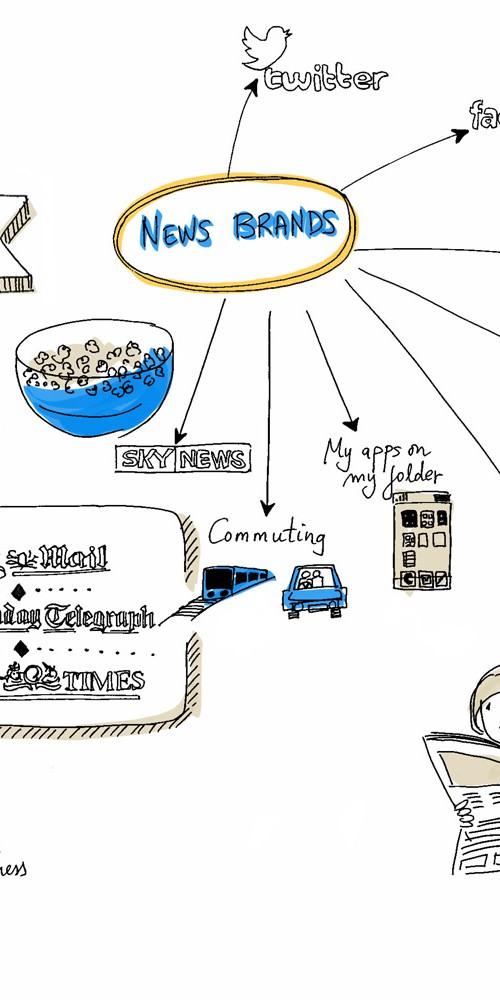 twitter
NEWS BRANDS
SKY NEWS
My apps on
my folder
Commuting
Mail
Telegraph
TIMES